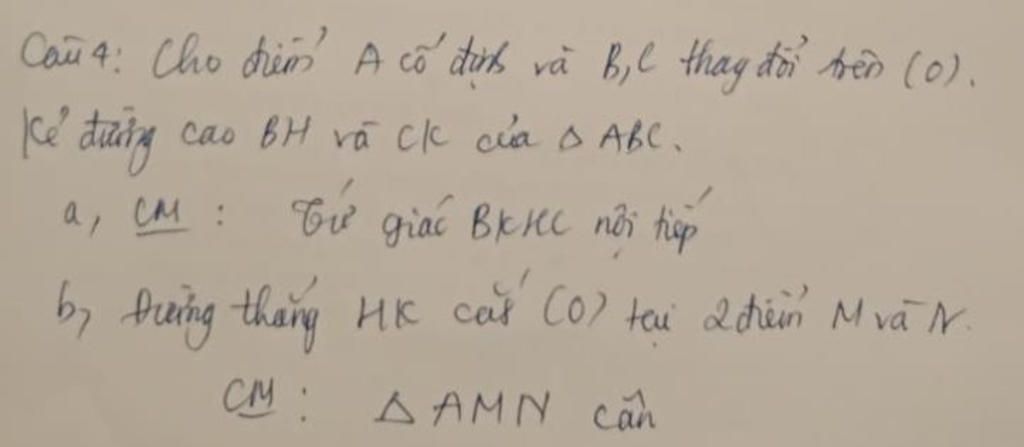 Câu 4: Cho điểm A cố định và B,C thay đổi trên (O).
Kẻ đường cao BH và CK của △ ABC.
a, CM : Tứ giác BKHC nội tiếp
b, Đường thẳng HK cắt (O) tại 2 điểm M và N.
CM : △ AMN cân